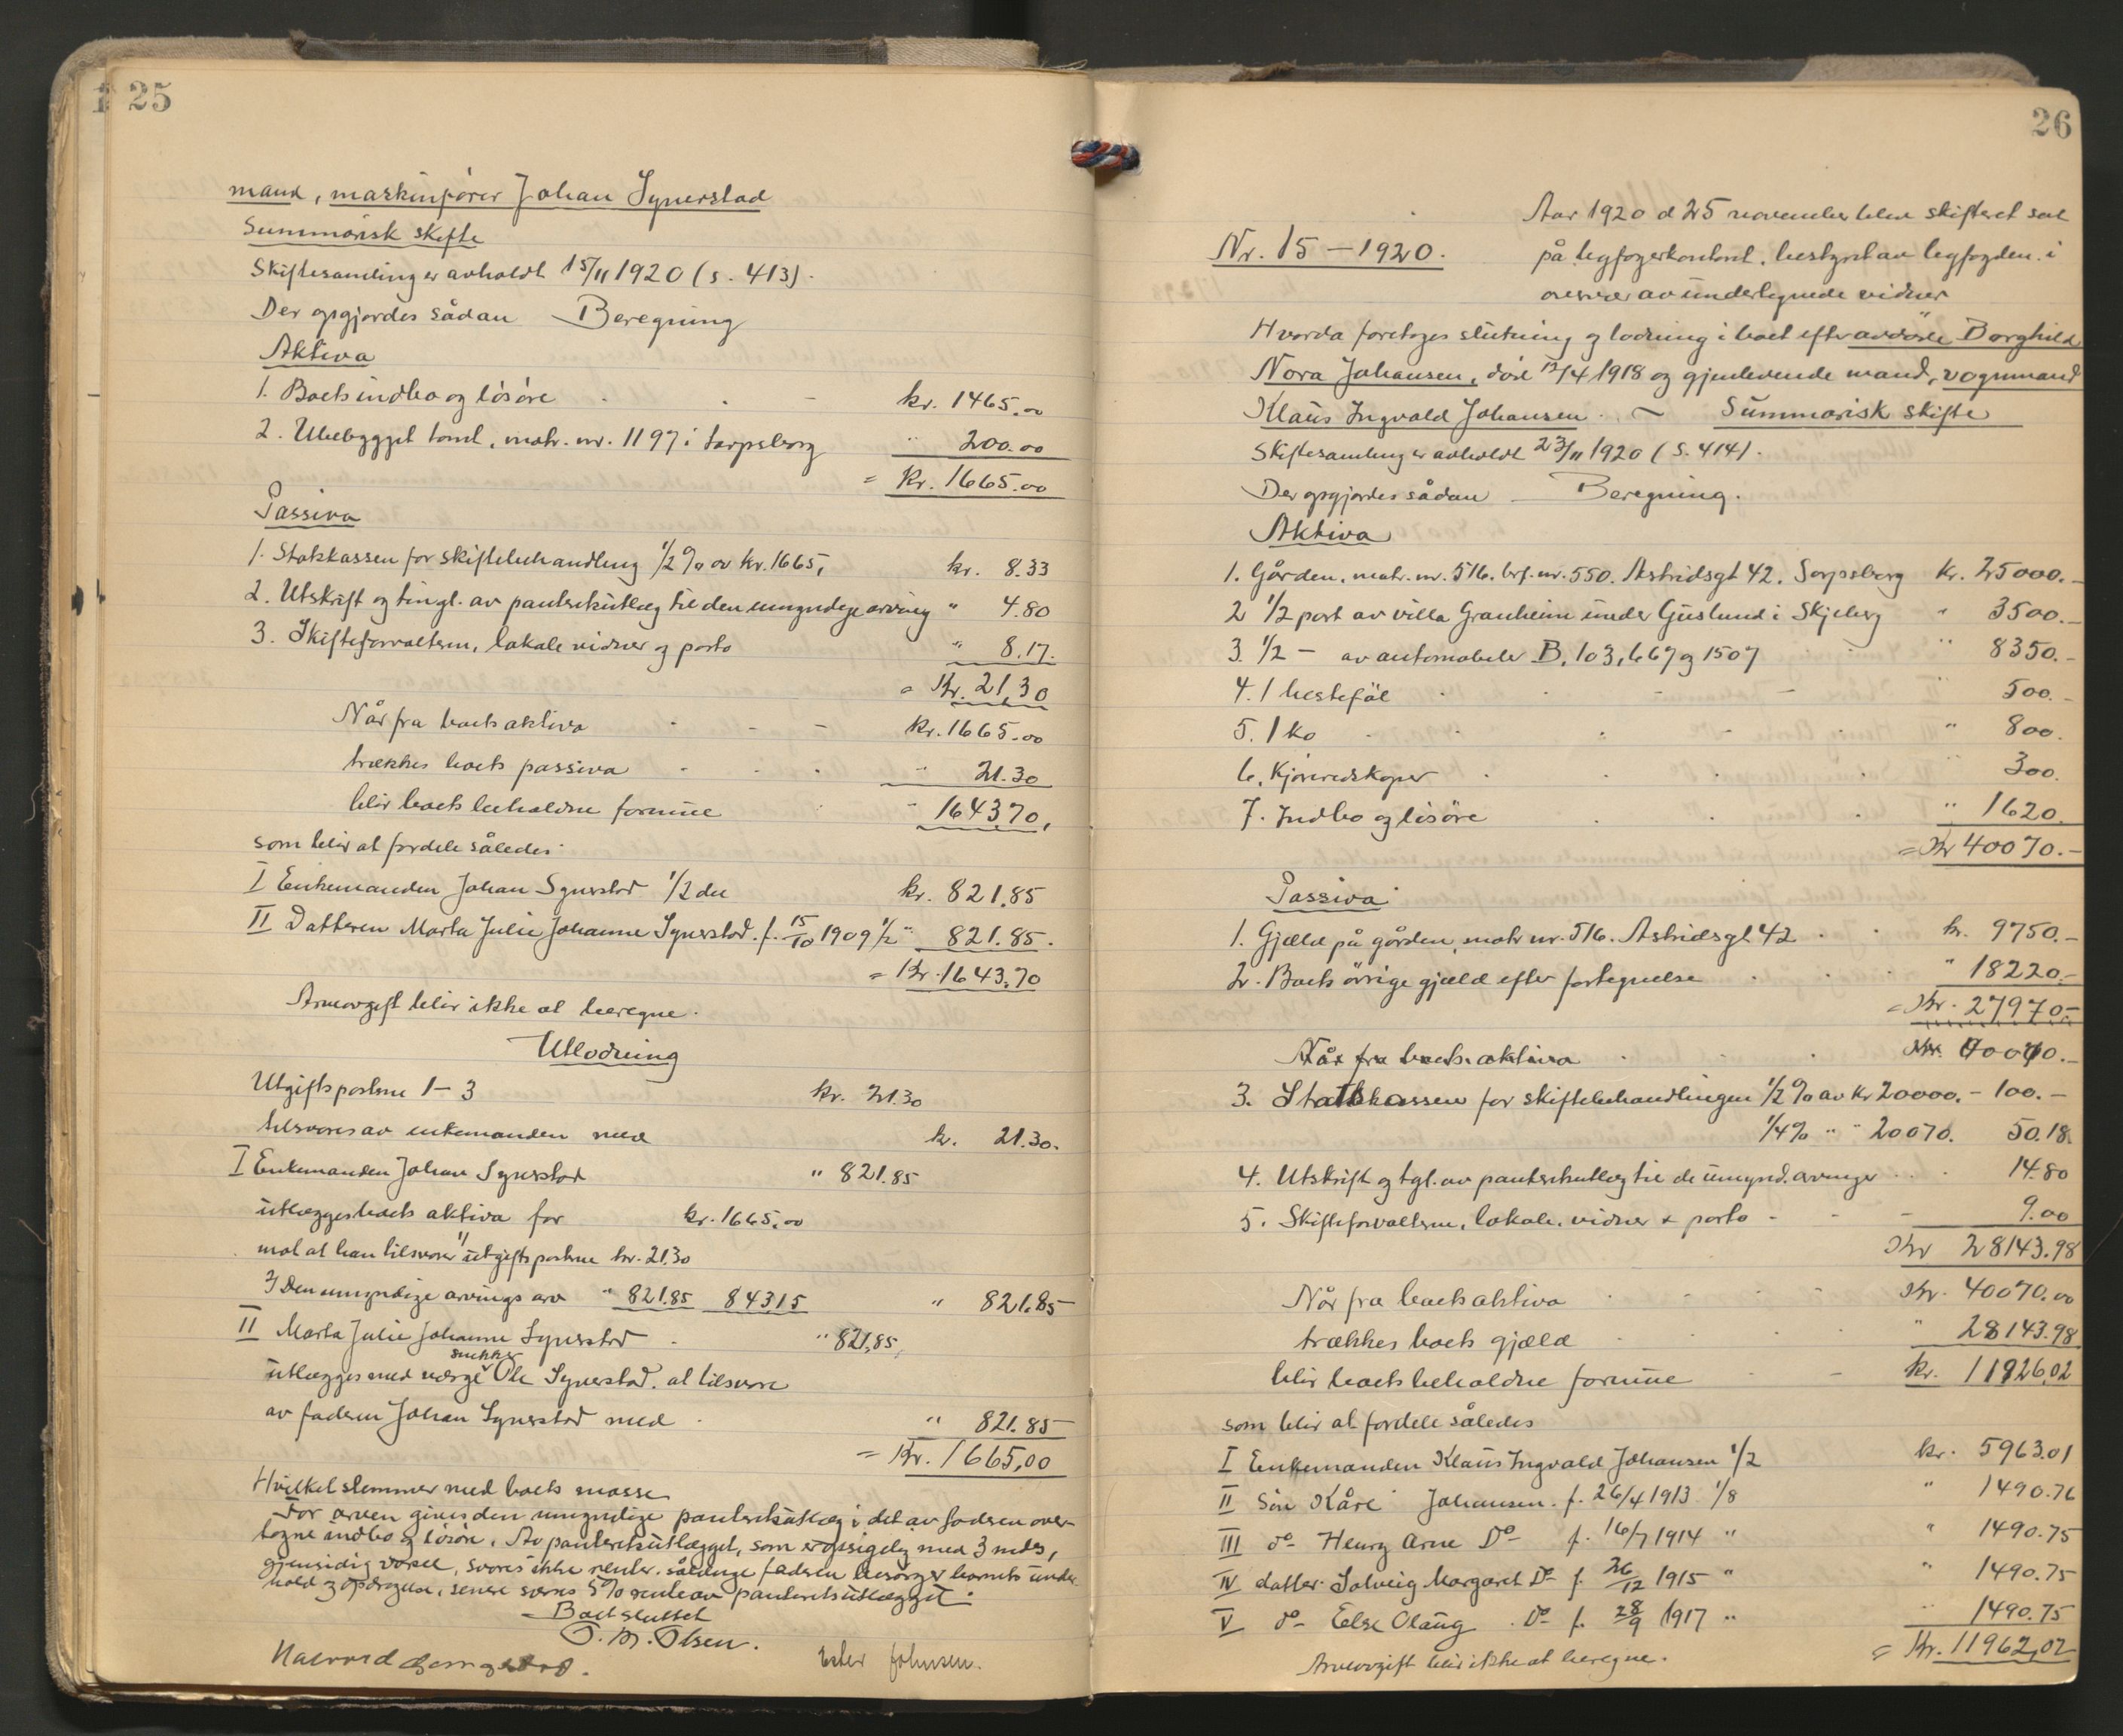 25
mand, maskinfører Johan Synerstad
Summarisk skifte
Skiftesamling er avholdt 15/11 1920 (s. 413).
Der opgjordes sådan Beregning
Aktiva
1. Boets indbo og løsøre kr. 1465.00
2. Ubebygget tomt, matr. nr. 1197 i Sarpsborg " 200.00
= Kr. 1665.00
Passiva
1. Statskassen for skiftebehandling 1/2 % av kr. 1665, kr. 8.33
2. Utskrift og tingl. av panteretsutlæg til den umyndige arving " 4.80
3. Skifteforvalteren, lokale vidner og porto " 8.17.
= Kr. 21,30
Når fra boets aktiva kr. 1665.00
trækkes boets passiva " 21.30
blir boets beholdne formue " 1643,70,
som blir at fordele således
I Enkemanden Johan Synerstad 1/2 del kr. 821.85
II Datteren Marta Julie Johanne Synerstad. f. 15/10 1909 1/2 " 821.85.
= Kr. 1643.70
Arveavgift blir ikke at beregne.
Utlodning
Utgiftsposterne 1-3 kr. 21.30
tilsvares av enkemanden med kr. 21.30.
I Enkemanden Johan Synerstad " 821.85
utlægges boets aktiva for kr. 1665.00
mot at han tilsvarer 1) utgiftsposterne kr. 21.30
2) Den umyndige arvings arv " 821.85 843.15 " 821.85
II Marta Julie Johanne Synerstad " 821,85,
utlægges med værge snekker Ole Synerstad. at tilsvare
av faderen Johan Synerstad med " 821.85
= Kr. 1665,00
Hvilket stemmer med boets masse
For arven gives den umyndige panteretsutlæg i det av faderen over-
tagne indbo og løsøre. Av panteretsutlægget, som er opsigelig med 3 mdrs,
gjensidig varsel, svares ikke renter. sålænge faderen besørger barnets under-
hold og opdragelse, senere svares 5% rente av panteretsutlægget.
Boet sluttet
O. M. Olsen.
Ester Johnsen.
26
Aar 1920 d 25 november blev skifteret sat
Nr. 15 - 1920.
på bygfogerkontoret, bestyret av byfogden i
overvær av undertegnede vidner
Hvorda foretoges slutning og lodning i boet efter avdøde Borghild
Nora Johansen, død 12/4 1918 og gjenlevende mand, vognmand
Klaus Ingvald Johansen. - Summarisk skifte
Skiftesamling er avholdt 23/11 1920 (s. 414).
Der opgjordes sådan Beregning.
Aktiva
1. Gården, matr. nr. 516. brf. nr. 550. Astridsgt 42. Sarpsborg kr. 25000.-
2 1/2 part av villa Granheim under Guslund i Skjeberg " 3500.-
3. 1/2 - av automobiler B. 103, 667 og 1507 " 8350.-
4. 1 hesteføl " 500.-
5. 1 ko " 800.
6. Kjøreredskaper " 300.
7. Indbo og løsøre " 1620.
= Kr 40070.-
Passiva
1. Gjæld på gården, matr nr. 516. Astridsgt 42 kr. 9750.-
2. Boets øvrige gjæld efter fortegnelse " 18220.-
= Kr. 27970.-
Når fra boets aktiva Kr. 40070.-
3. Statskassen for skiftebehandlingen 1/2 % av kr 20000. - 100.-
1/4% " " 20070. 50.18.
4. Utskrift og tgl. av panteretsutlæg til de umynd. arvinger 14.80
5. Skifteforvalteren, lokale, vidner & porto 9.00
Kr 28143.98
Når fra boets aktiva Kr. 40070.00
trækkes boets gjæld " 28143.98
blir boets beholdne formue kr. 11926,02
som blir at fordele således
I Enkemanden Klaus Ingvald Johansen 1/2 kr. 5963.01
II Søn Kåre Johansen. f. 26/4 1913 1/8 " 1490.76
III do Henry Arne Do f. 16/7 1914 " " 1490.75
IV datter Solveig Margaret Do f. 26/12 1915 " " 1490.75
V do Else Olaug Do f. 28/9 1917 " " 1490.75
= Kr. 11962,02
Arveavgift blir ikke at beregne.